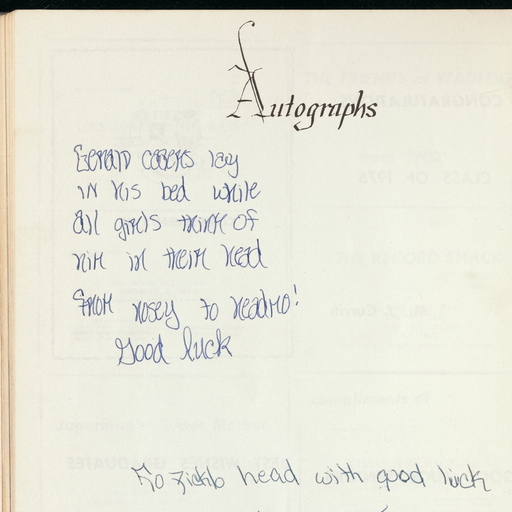 Autographs
Gerald Cabers lay
in his bed while
all girls think of
him in their head
from nosey to headmo!
Good luck
To head with good luck